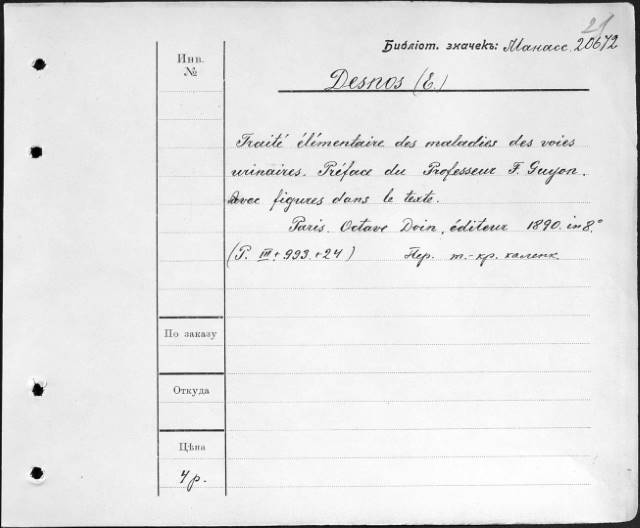 21
Библіот. значекъ: Манасс. 20672
Инв.
№
Desnos (E.)
Traité élémentaire des maladies des voies
urinaires. Préface du Professeur F. Guyon.
Avec figures dans le texte.
Paris. Octave Doin, éditeur 1890. in 8.°
(P. III + 993. + 24) Пер. т.-кр. каленк
По заказу
Откуда
Цѣна
4 р.